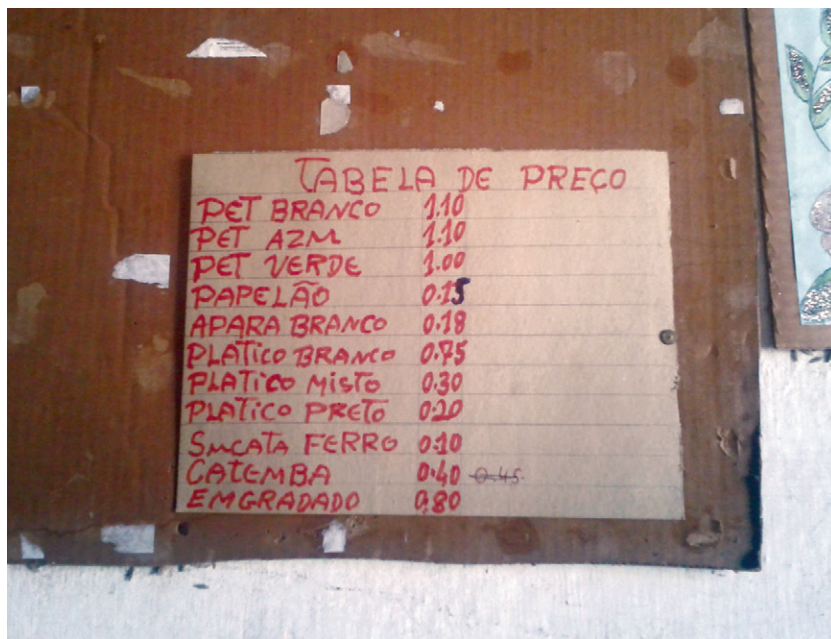 TABELA DE PREÇO
PET BRANCO 1.10
PET AZUL 1.10
PET VERDE 1.00
PAPELÃO 0.15
APARA BRANCO 0.18
PLATICO BRANCO 0.75
PLATICO MISTO 0.30
PLATICO PRETO 0.20
SUCATA FERRO 0.10
CATEMBA 0.40 0.45
EMGRADADO 0,80